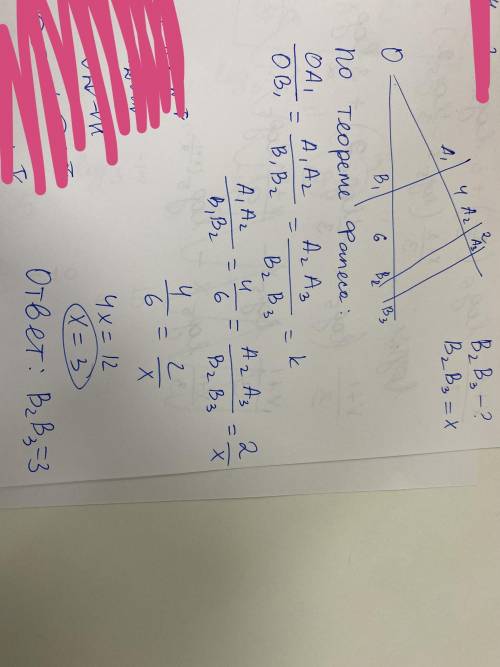 O
A₁
4
A₂
2
A₃
B₁
6
B₂
B₃
B₂B₃ - ?
B₂B₃ = x
По теореме Фалеса:
OA₁/OB₁ = A₁A₂/B₁B₂ = A₂A₃/B₂B₃ = k
A₁A₂/B₁B₂ = 4/6 = A₂A₃/B₂B₃ = 2/x
4/6 = 2/x
4x = 12
x = 3
Ответ: B₂B₃ = 3